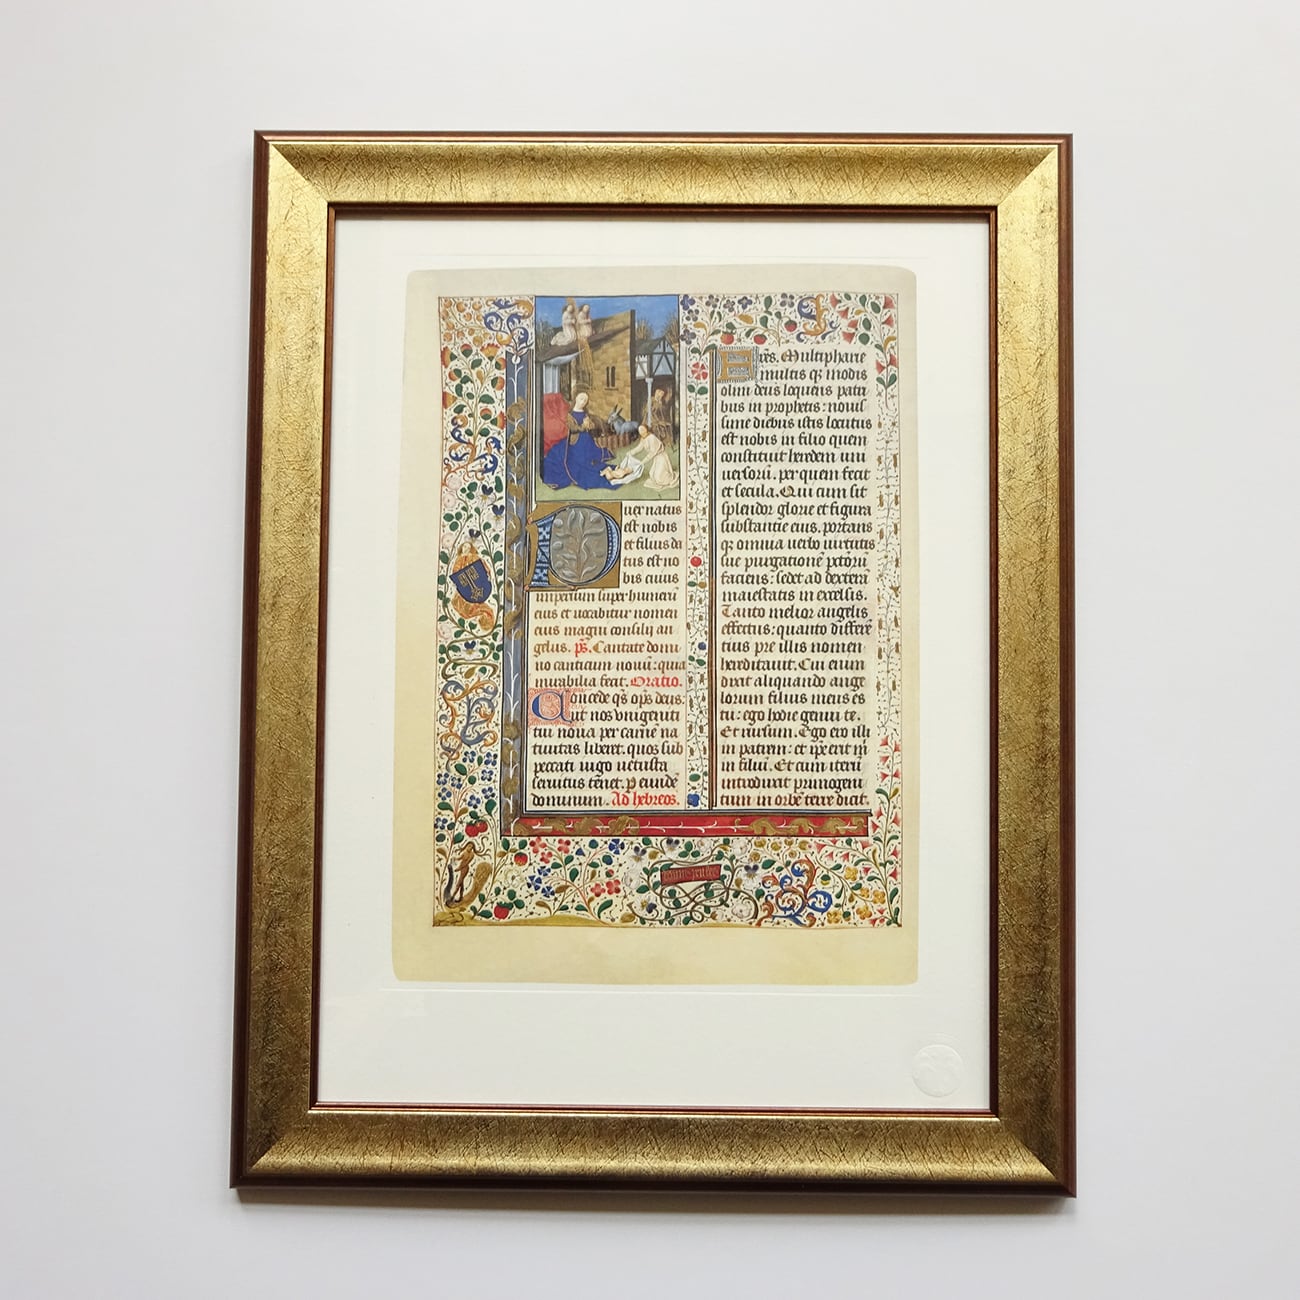 Puer natus
est nobis
et filius da
tus est no
bis cuius
imperium super humerū
eius et uocabitur nomen
eius magni consilij an
gelus. ps. Cantate domi
no canticum nouū: quia
mirabilia fecit. Oratio.
Concede qs ops deus:
ut nos vnigeniti
tui noua per carnē na
tiuitas liberet. quos sub
peccati iugo uetusta
seruitus tenet. p eundē
dominum. Ad hebreos.
res. Multipharie
multis qz modis
olim deus loquens patri
bus in prophetis: nouis
sime diebus istis locutus
est nobis in filio quem
constituit heredem uni
uersorū. per quem fecit
et secula. Qui cum sit
splendor glorie et figura
substantie eius. portans
qz omnia uerbo uirtutis
sue purgationē pctōrū
faciens: sedet ad dexterā
maiestatis in excelsis.
Tanto melior angelis
effectus: quanto differē
tius pre illis nomen
hereditauit. Cui enim
dixit aliquando ange
lorum filius meus es
tu: ego hodie genui te.
Et rursum. Ego ero illi
in patrem: et ipe erit m̄
in filiū. Et cum iterū
introducit primogeni
tum in orbē terre dicit.